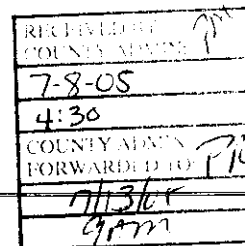 RECEIVED BY
COUNTY ADMIN:
7-8-05
4:30
COUNTY ADMIN
FORWARDED TO:
7/13/05
9AM